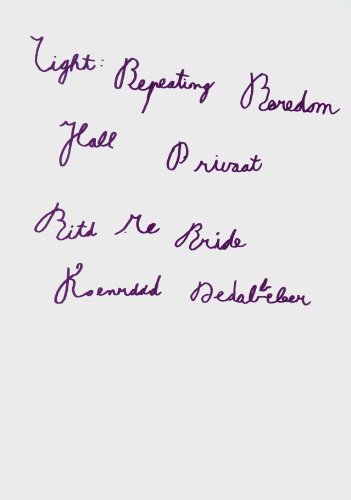 Tight: Repeating Boredom
Hall Privaat
Ritd Me Bride
Koenraad Dedobbeleer